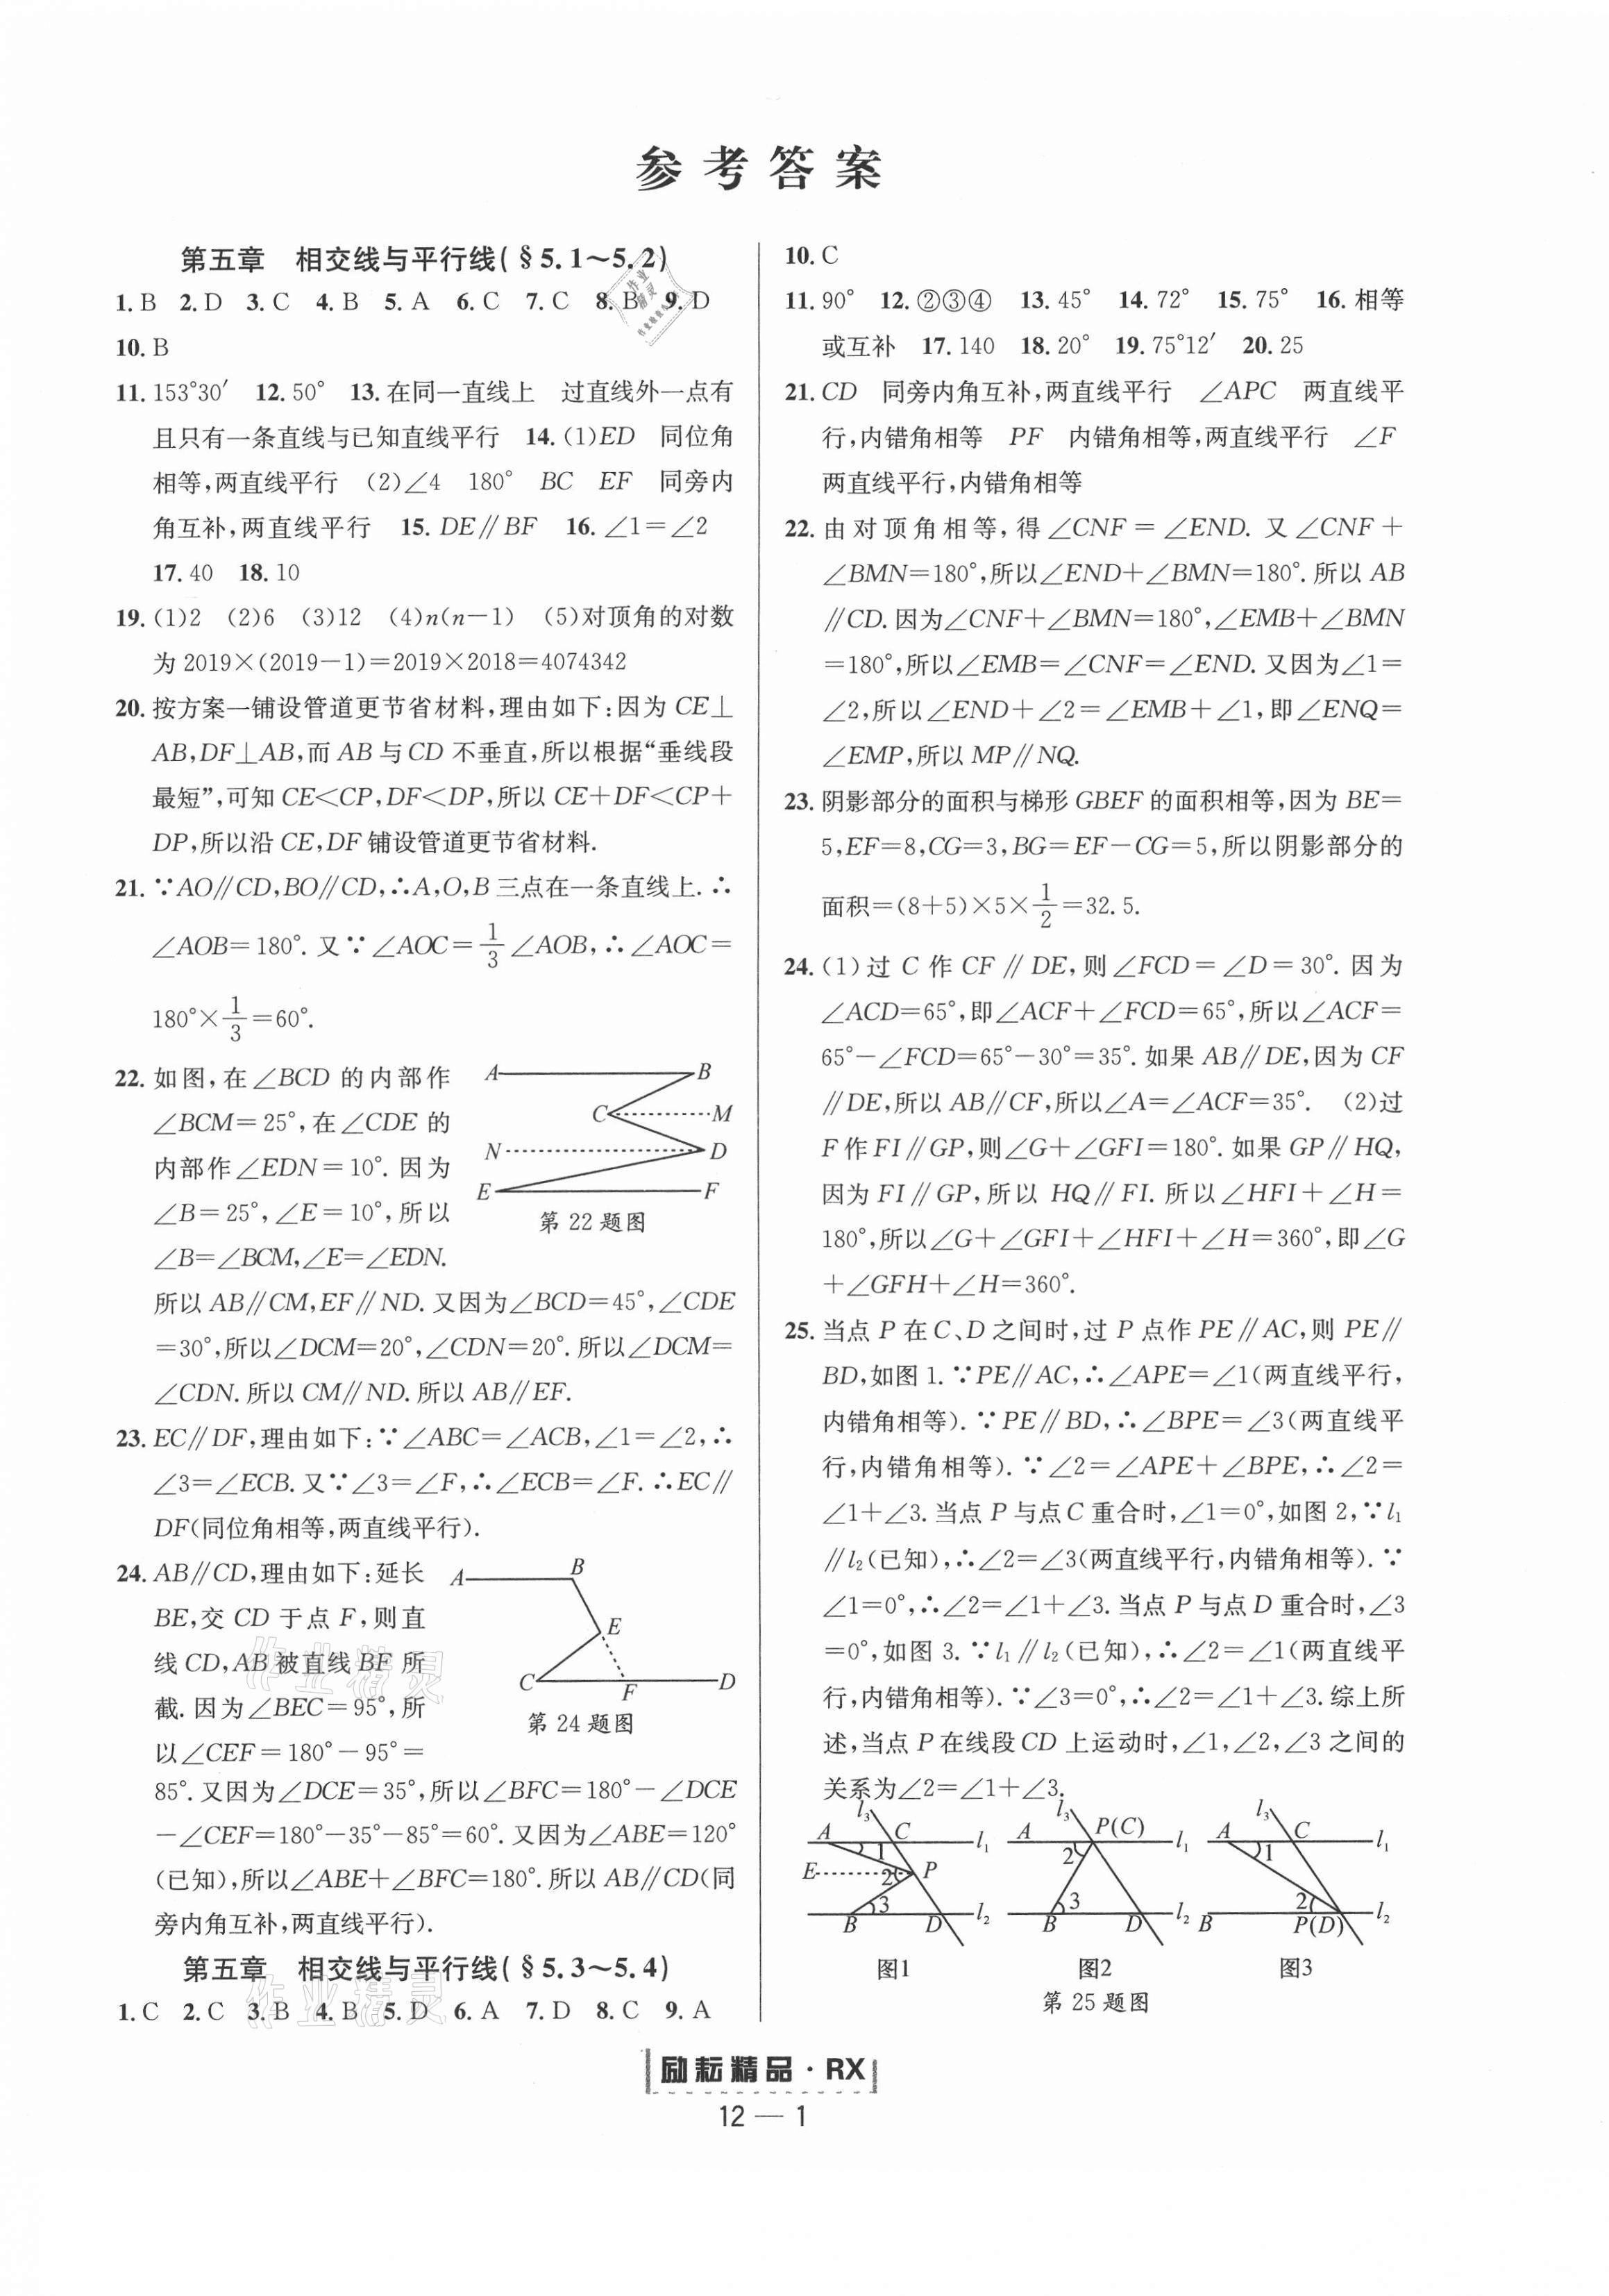 参考答案
第五章 相交线与平行线(§5.1～5.2)
1. B 2. D 3. C 4. B 5. A 6. C 7. C 8. B 9. D
10. B
11. 153°30′ 12. 50° 13. 在同一直线上 过直线外一点有
且只有一条直线与已知直线平行 14. (1)ED 同位角
相等,两直线平行 (2)∠4 180° BC EF 同旁内
角互补,两直线平行 15. DE∥BF 16. ∠1=∠2
17. 40 18. 10
19. (1)2 (2)6 (3)12 (4)n(n-1) (5)对顶角的对数
为2019×(2019-1)=2019×2018=4074342
20. 按方案一铺设管道更节省材料,理由如下:因为CE⊥
AB,DF⊥AB,而AB与CD不垂直,所以根据“垂线段
最短”,可知CE<CP,DF<DP,所以CE+DF<CP+
DP,所以沿CE,DF铺设管道更节省材料.
21. ∵AO∥CD,BO∥CD,∴A,O,B三点在一条直线上.∴
∠AOB=180°.又∵∠AOC=1/3∠AOB,∴∠AOC=
180°×1/3=60°.
22. 如图,在∠BCD的内部作
∠BCM=25°,在∠CDE的
内部作∠EDN=10°.因为
∠B=25°,∠E=10°,所以
∠B=∠BCM,∠E=∠EDN.
A B
C M
N D
E F
第22题图
所以AB∥CM,EF∥ND.又因为∠BCD=45°,∠CDE
=30°,所以∠DCM=20°,∠CDN=20°.所以∠DCM=
∠CDN.所以CM∥ND.所以AB∥EF.
23. EC∥DF,理由如下:∵∠ABC=∠ACB,∠1=∠2,∴
∠3=∠ECB.又∵∠3=∠F,∴∠ECB=∠F.∴EC∥
DF(同位角相等,两直线平行).
24. AB∥CD,理由如下:延长
BE,交CD于点F,则直
线CD,AB被直线BF所
截.因为∠BEC=95°,所
以∠CEF=180°-95°=
A B
E
C F D
第24题图
85°.又因为∠DCE=35°,所以∠BFC=180°-∠DCE
-∠CEF=180°-35°-85°=60°.又因为∠ABE=120°
(已知),所以∠ABE+∠BFC=180°.所以AB∥CD(同
旁内角互补,两直线平行).
第五章 相交线与平行线(§5.3～5.4)
1. C 2. C 3. B 4. B 5. D 6. A 7. D 8. C 9. A
10. C
11. 90° 12. ②③④ 13. 45° 14. 72° 15. 75° 16. 相等
或互补 17. 140 18. 20° 19. 75°12′ 20. 25
21. CD 同旁内角互补,两直线平行 ∠APC 两直线平
行,内错角相等 PF 内错角相等,两直线平行 ∠F
两直线平行,内错角相等
22. 由对顶角相等,得∠CNF=∠END.又∠CNF+
∠BMN=180°,所以∠END+∠BMN=180°.所以AB
∥CD.因为∠CNF+∠BMN=180°,∠EMB+∠BMN
=180°,所以∠EMB=∠CNF=∠END.又因为∠1=
∠2,所以∠END+∠2=∠EMB+∠1,即∠ENQ=
∠EMP,所以MP∥NQ.
23. 阴影部分的面积与梯形GBEF的面积相等,因为BE=
5,EF=8,CG=3,BG=EF-CG=5,所以阴影部分的
面积=(8+5)×5×1/2=32.5.
24. (1)过C作CF∥DE,则∠FCD=∠D=30°.因为
∠ACD=65°,即∠ACF+∠FCD=65°,所以∠ACF=
65°-∠FCD=65°-30°=35°.如果AB∥DE,因为CF
∥DE,所以AB∥CF,所以∠A=∠ACF=35°. (2)过
F作FI∥GP,则∠G+∠GFI=180°.如果GP∥HQ,
因为FI∥GP,所以HQ∥FI.所以∠HFI+∠H=
180°,所以∠G+∠GFI+∠HFI+∠H=360°,即∠G
+∠GFH+∠H=360°.
25. 当点P在C、D之间时,过P点作PE∥AC,则PE∥
BD,如图1.∵PE∥AC,∴∠APE=∠1(两直线平行,
内错角相等).∵PE∥BD,∴∠BPE=∠3(两直线平
行,内错角相等).∵∠2=∠APE+∠BPE,∴∠2=
∠1+∠3.当点P与点C重合时,∠1=0°,如图2,∵l₁
∥l₂(已知),∴∠2=∠3(两直线平行,内错角相等).∵
∠1=0°,∴∠2=∠1+∠3.当点P与点D重合时,∠3
=0°,如图3.∵l₁∥l₂(已知),∴∠2=∠1(两直线平
行,内错角相等).∵∠3=0°,∴∠2=∠1+∠3.综上所
述,当点P在线段CD上运动时,∠1,∠2,∠3之间的
关系为∠2=∠1+∠3.
l₃ l₃ l₃
A C l₁ A P(C) l₁ A C l₁
1 2 1
E 2 P
3 3 2
B D l₂ B D l₂ B P(D) l₂
图1 图2 图3
第25题图
作业精灵
作业精灵
作业精灵
励耘精品·RX
12—1